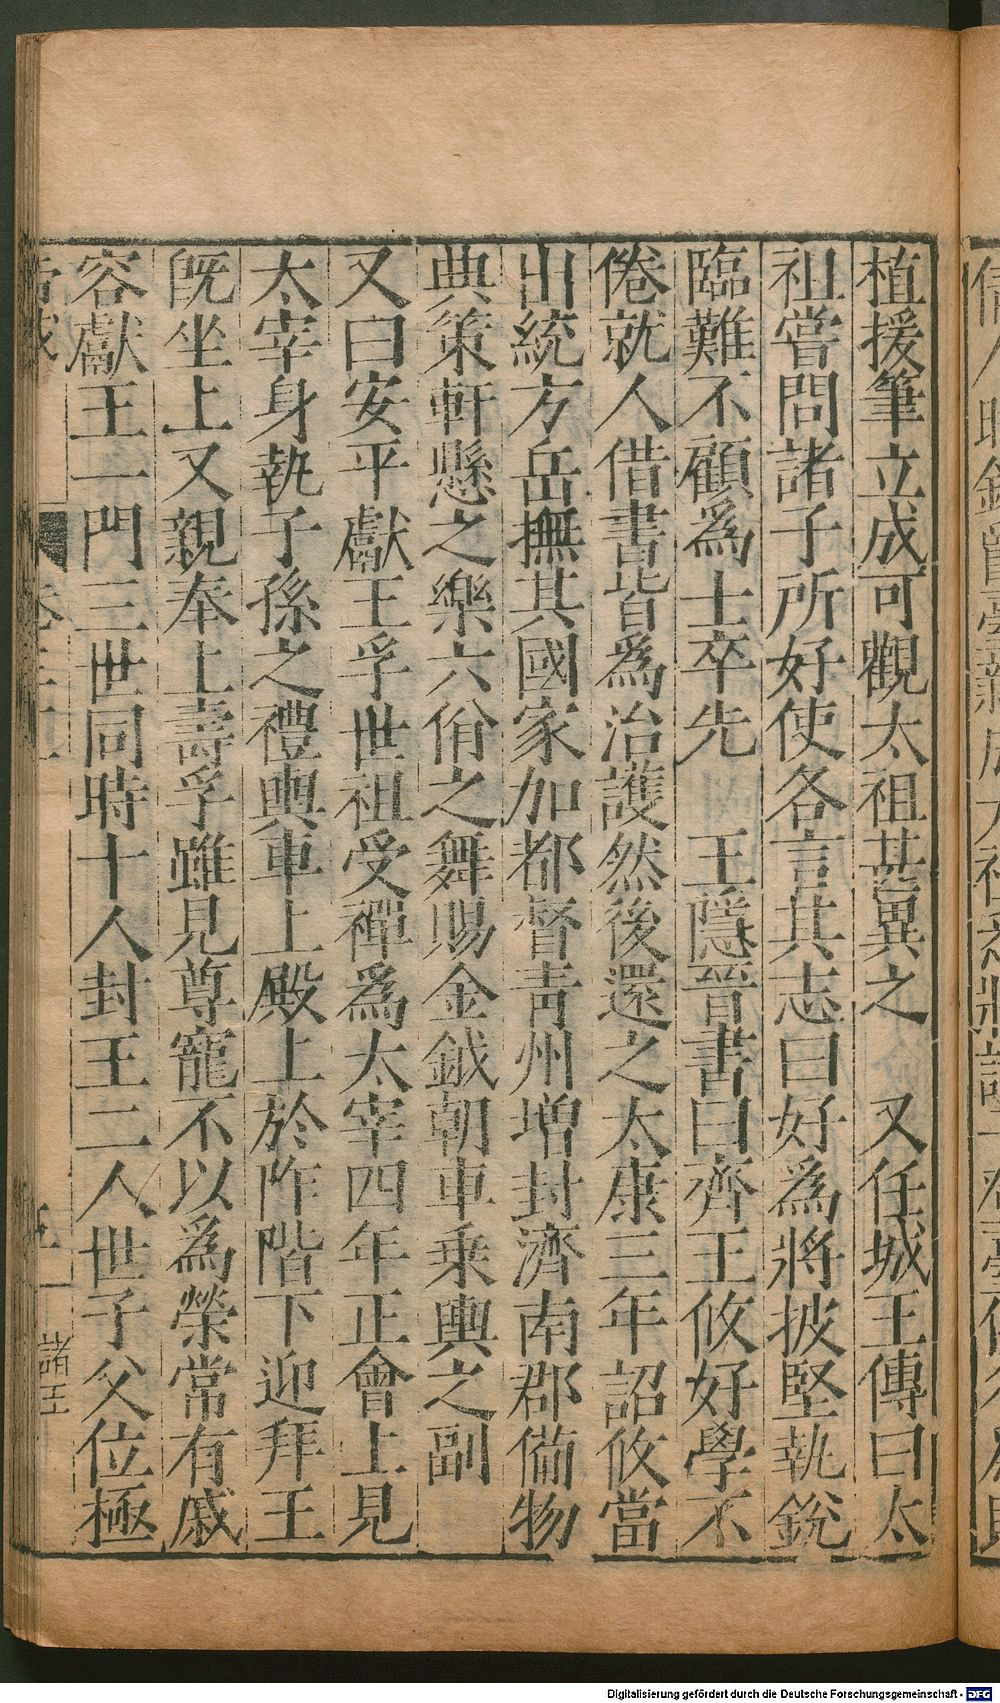 植援筆立成可觀太祖甚異之　又任城王傳曰太
祖嘗問諸子所好使各言其志曰好為將披堅執銳
臨難不顧為士卒先　王隱晉書曰齊王攸好學不
倦就人借書皆為治護然後還之太康三年詔攸當
出統方岳撫其國家加都督青州增封濟南郡備物
典策軒懸之樂六佾之舞賜金鉞朝車乘輿之副
又曰安平獻王孚世祖受禪為太宰四年正會上見
太宰身執子孫之禮輿車上殿上於阼階下迎拜王
旣坐上又親奉上壽孚雖見尊寵不以為榮常有戚
容獻王一門三世同時十人封王二人世子父位極
諸王
Digitalisierung gefördert durch die Deutsche Forschungsgemeinschaft - DFG